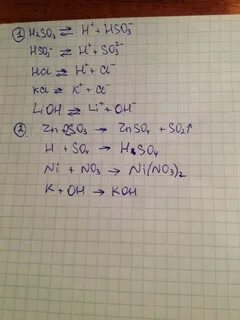 1) H₂SO₃ ⇄ H⁺ + HSO₃⁻
HSO₃⁻ ⇄ H⁺ + SO₃²⁻
HCl ⇄ H⁺ + Cl⁻
KCl ⇄ K⁺ + Cl⁻
LiOH ⇄ Li⁺ + OH⁻
2) Zn + SO₃ → ZnSO₄ + SO₂↑
H + SO₄ → H₂SO₄
Ni + NO₃ → Ni(NO₃)₂
K + OH → KOH